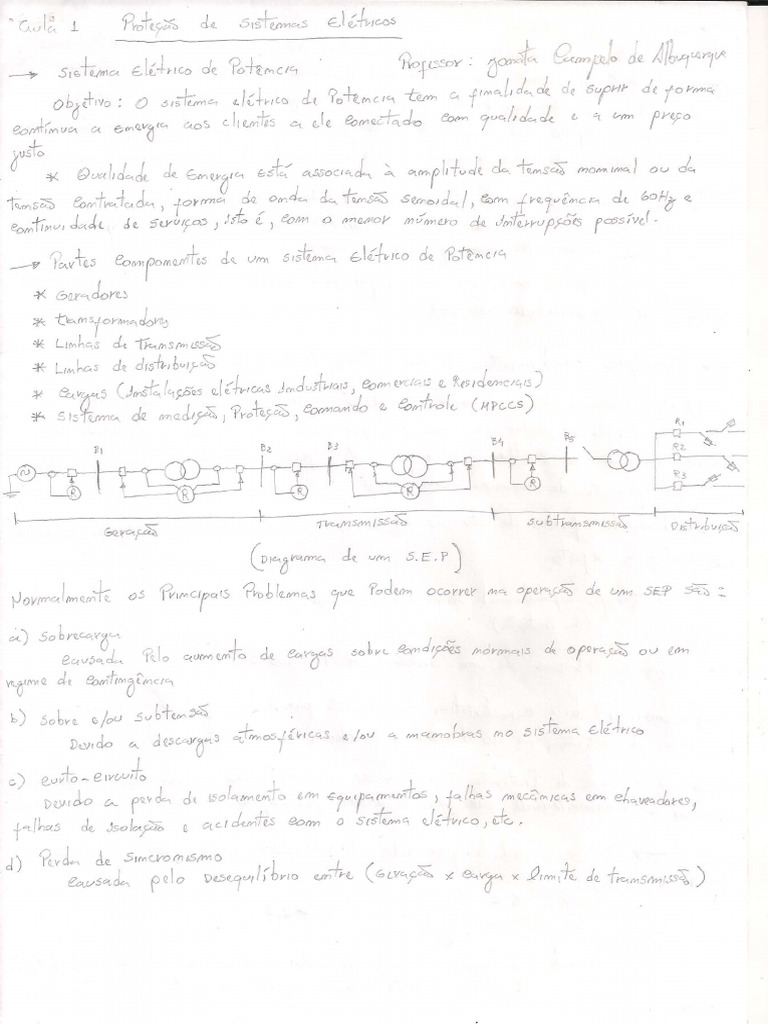 Aula 1 Proteção de Sistemas Elétricos
→ Sistema Elétrico de Potência Professor: Jonata Campelo de Albuquerque
Objetivo: O sistema elétrico de Potência tem a finalidade de suprir de forma
contínua a energia aos clientes a ele conectado com qualidade e a um preço
justo
* Qualidade de Energia Está associada à amplitude da tensão nominal ou da
tensão contratada, forma de onda da tensão senoidal, com frequência de 60Hz e
continuidade de serviços, isto é, com o menor número de interrupções possível.
→ Partes Componentes de um sistema Elétrico de Potência
* Geradores
* transformadores
* Linhas de Transmissão
* Linhas de distribuição
* Cargas (Instalações elétricas Industriais, Comerciais e Residenciais)
* Sistema de medição, Proteção, Comando e Controle (MPCCS)
B1 B2 B3 B4 B5 R1
R2
R3
R R R R R
Geração Transmissão Subtransmissão Distribuição
(Diagrama de um S.E.P)
Normalmente os Principais Problemas que Podem ocorrer na operação de um SEP São:
a) Sobrecarga
Causada Pelo aumento de cargas sobre condições normais de operação ou em
regime de contingência
b) Sobre e/ou subtensão
Devido a descargas atmosféricas e/ou a manobras no sistema Elétrico
c) curto-circuito
Devido a perda de isolamento em Equipamentos, falhas mecânicas em chaveadores,
falhas de isolação e acidentes com o sistema elétrico, etc.
d) Perda de sincronismo
Causada pelo Desequilíbrio entre (Geração x carga x limite de transmissão)